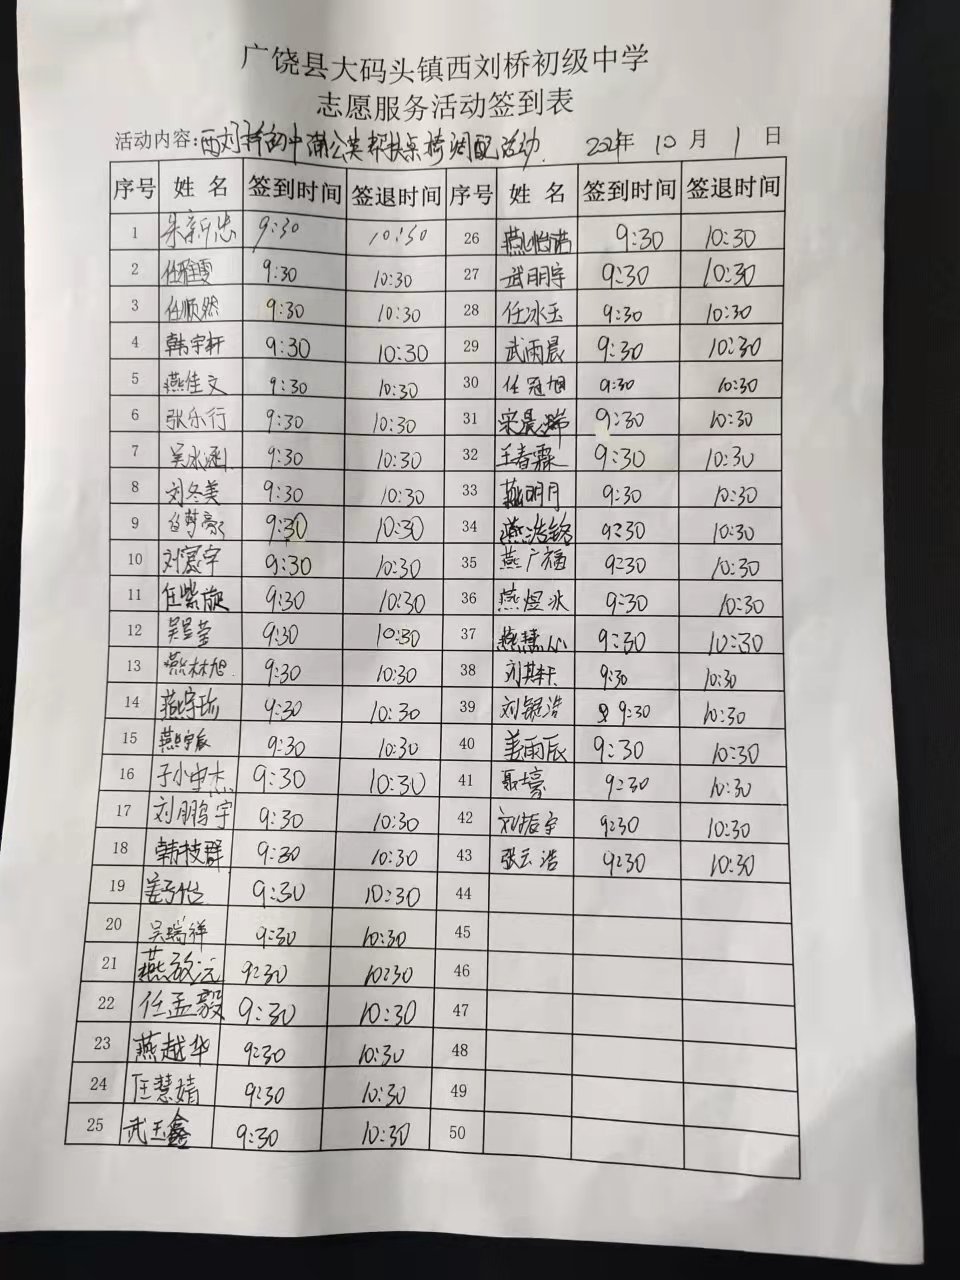 广饶县大码头镇西刘桥初级中学
志愿服务活动签到表
活动内容:西刘桥初中蒲公英帮扶桌椅调配活动 2021年 10月 1日
序号 姓名 签到时间 签退时间 序号 姓名 签到时间 签退时间
1 朱新忠 9:30 10:30 26 燕怡诺 9:30 10:30
2 任雅雯 9:30 10:30 27 武明宇 9:30 10:30
3 任顺然 9:30 10:30 28 任冰玉 9:30 10:30
4 韩宇轩 9:30 10:30 29 武雨晨 9:30 10:30
5 燕佳文 9:30 10:30 30 任冠旭 9:30 10:30
6 张乐行 9:30 10:30 31 宋晨 9:30 10:30
7 吴冰涵 9:30 10:30 32 王春霖 9:30 10:30
8 刘冬美 9:30 10:30 33 燕明月 9:30 10:30
9 9:30 10:30 34 燕浩铭 9:30 10:30
10 刘寰宇 9:30 10:30 35 燕广福 9:30 10:30
11 任紫旋 9:30 10:30 36 燕煜冰 9:30 10:30
12 吴昱莹 9:30 10:30 37 燕慧心 9:30 10:30
13 燕林旭 9:30 10:30 38 刘其轩 9:30 10:30
14 燕宇珎 9:30 10:30 39 刘锟浩 9:30 10:30
15 燕宇辰 9:30 10:30 40 姜雨辰 9:30 10:30
16 于小中杰 9:30 10:30 41 聂壕 9:30 10:30
17 刘鹏宇 9:30 10:30 42 刘振宇 9:30 10:30
18 韩技群 9:30 10:30 43 张云浩 9:30 10:30
19 姜子怡 9:30 10:30 44
20 吴瑞祥 9:30 10:30 45
21 燕致远 9:30 10:30 46
22 任孟毅 9:30 10:30 47
23 燕越华 9:30 10:30 48
24 任慧婧 9:30 10:30 49
25 武玉鑫 9:30 10:30 50